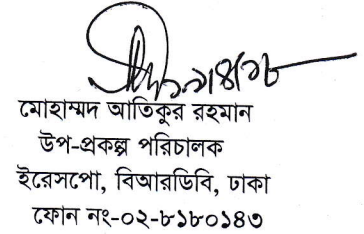 মোহাম্মদ আতিকুর রহমান
উপ-প্রকল্প পরিচালক
ইরেসপো, বিআরডিবি, ঢাকা
ফোন নং-০২-৮১৮০১৪৩